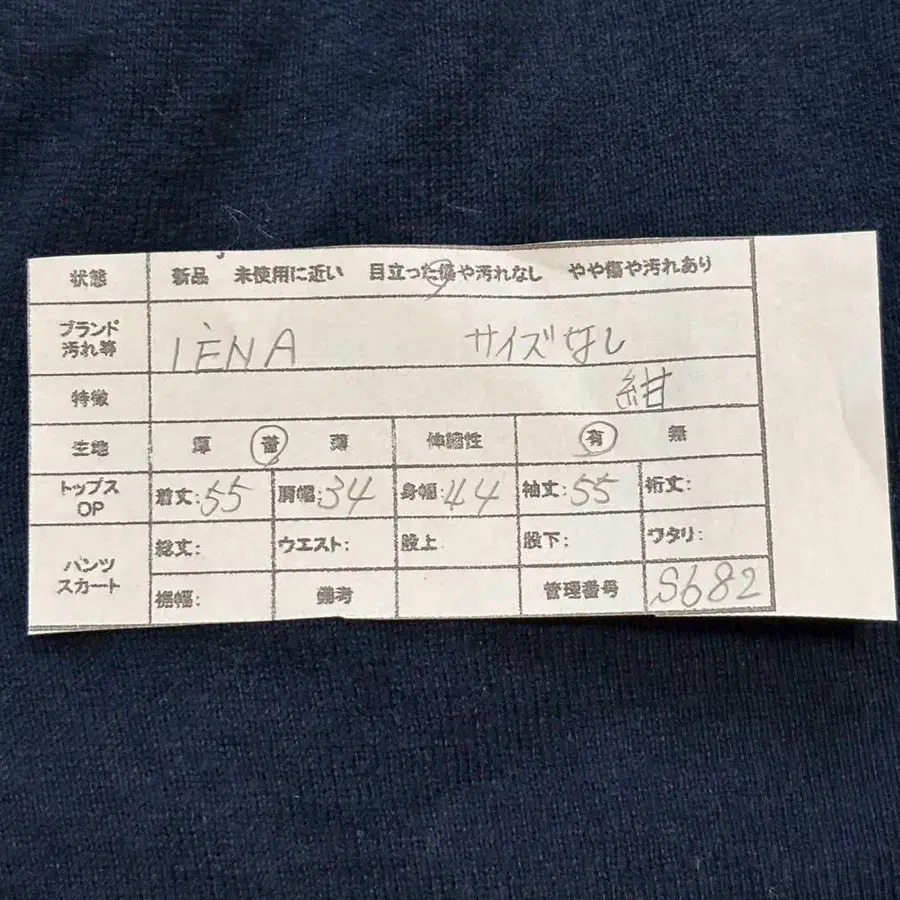 状態 新品 未使用に近い 目立った傷や汚れなし やや傷や汚れあり
ブランド
汚れ等 IÈNA サイズなし
特徴 紺
生地 厚 普 薄 伸縮性 有 無
トップス
OP 着丈:55 肩幅:34 身幅:44 袖丈:55 裄丈:
パンツ
スカート 総丈: ウエスト: 股上 股下: ワタリ:
裾幅: 備考 管理番号 S682